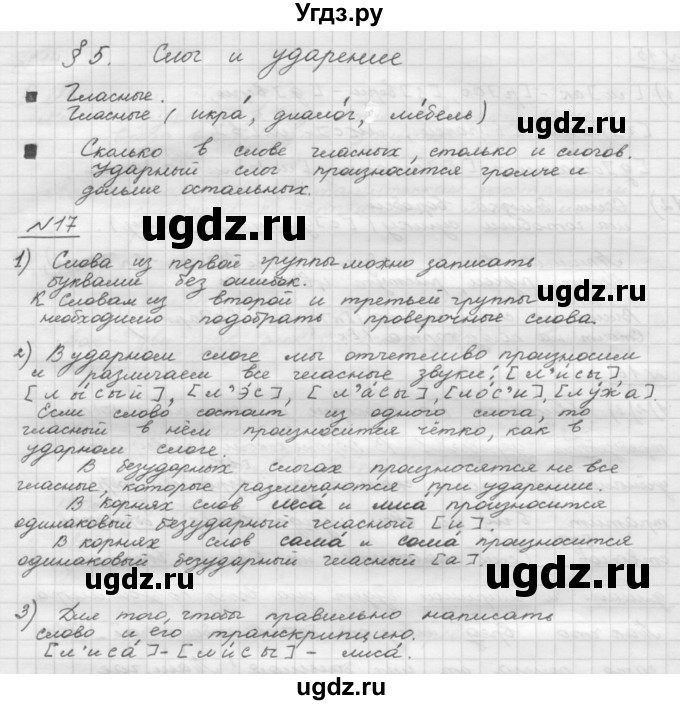 Угдз.ру
§ 5. Слог и ударение
Гласные.
Гласные ( икра́, диало́г, ме́бель)
ugdz.ru
Сколько в слове гласных, столько и слогов.
Ударный слог произносится громче и
дольше остальных.
ugdz.ru
ugdz.ru
№17
1) Слова из первой группы можно записать
буквами без ошибок.
К словам из второй и третьей группы
необходимо подобрать проверочные слова.
ugdz.ru
2) В ударном слоге мы отчетливо произносим
и различаем все гласные звуки: [л'и́сы]
[лы́сый], [л'э́с], [л'а́сы], [ло́с'и], [лу́жа].
Если слово состоит из одного слога, то
гласный в нём произносится чётко, как в
ударном слоге.
ugdz.ru
В безударных слогах произносятся не все
гласные, которые различаются при ударении.
В корнях слов леса́ и лиса́ произносится
одинаковый безударный гласный [и].
В корнях слов сама́ и сома́ произносится
одинаковый безударный гласный [а].
ugdz.ru
ugdz.ru
3) Для того, чтобы правильно написать
слово и его транскрипцию.
[л'иса́] - [л'и́сы] - лиса́.
ugdz.ru